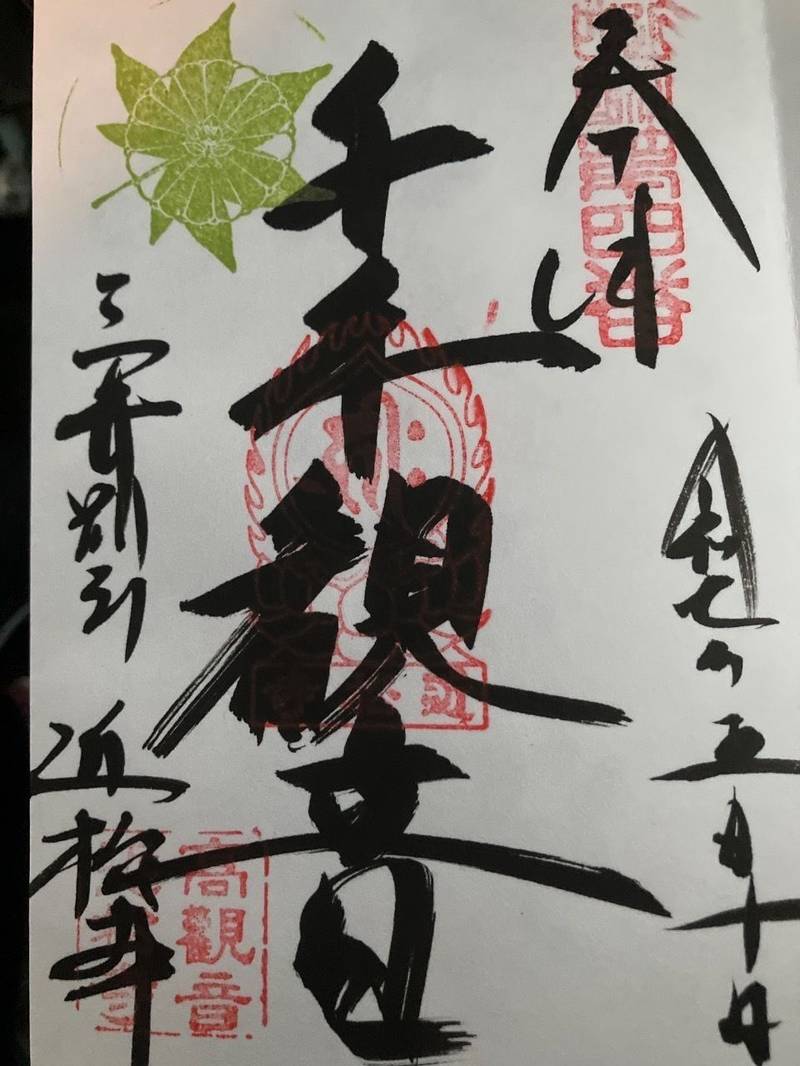 奉拝
第四番
令和七年五月十日
千手観音
三井別所
近松寺
高觀音